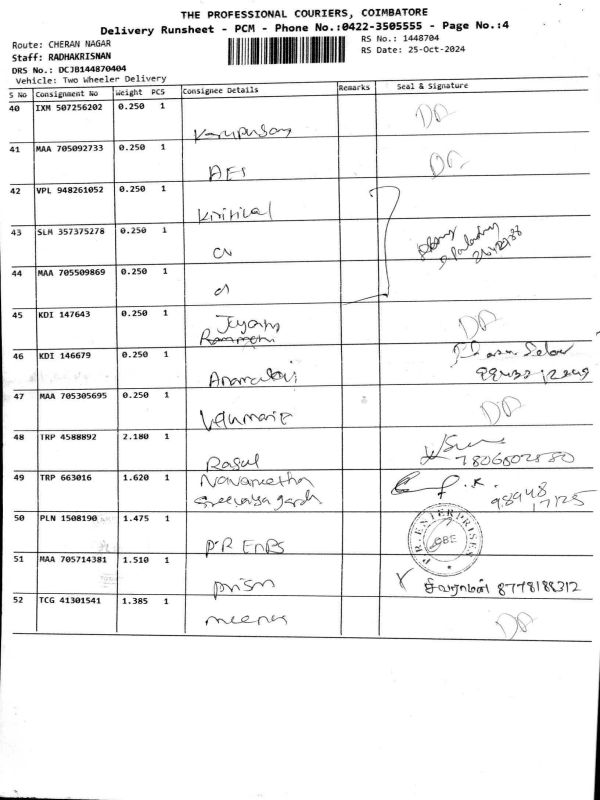 THE PROFESSIONAL COURIERS, COIMBATORE
Delivery Runsheet - PCM - Phone No.:0422-3505555 - Page No.:4
Route: CHERAN NAGAR
RS No.: 1448704
Staff: RADHAKRISNAN
RS Date: 25-Oct-2024
DRS No.: DCJB144870404
Vehicle: Two Wheeler Delivery
S No Consignment No Weight PCS Consignee Details Remarks Seal & Signature
40 IXM 507256202 0.250 1
41 MAA 705092733 0.250 1
AEI
42 VPL 948261052 0.250 1
43 SLM 357375278 0.250 1
44 MAA 705509869 0.250 1
45 KDI 147643 0.250 1
46 KDI 146679 0.250 1
47 MAA 705305695 0.250 1
48 TRP 4588892 2.180 1
Rasul
7806802880
49 TRP 663016 1.620 1
Navaneetha
98948
17125
50 PLN 1508190 1.475 1
P.R ENTERPRISES
CBE
P.R EnPS
51 MAA 705714381 1.510 1
Prism
சிவராமன் 8778188312
52 TCG 41301541 1.385 1
meena